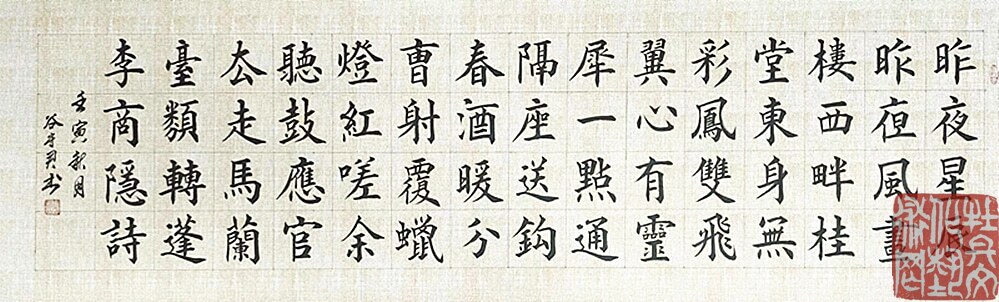 昨夜星辰
昨夜風畫
樓西畔桂
堂東身無
彩鳳雙飛
翼心有靈
犀一點通
隔座送鈎
春酒暖分
曹射覆蠟
燈紅嗟余
聽鼓應官
去走馬蘭
臺類轉蓬
李商隱詩
壬寅秋月